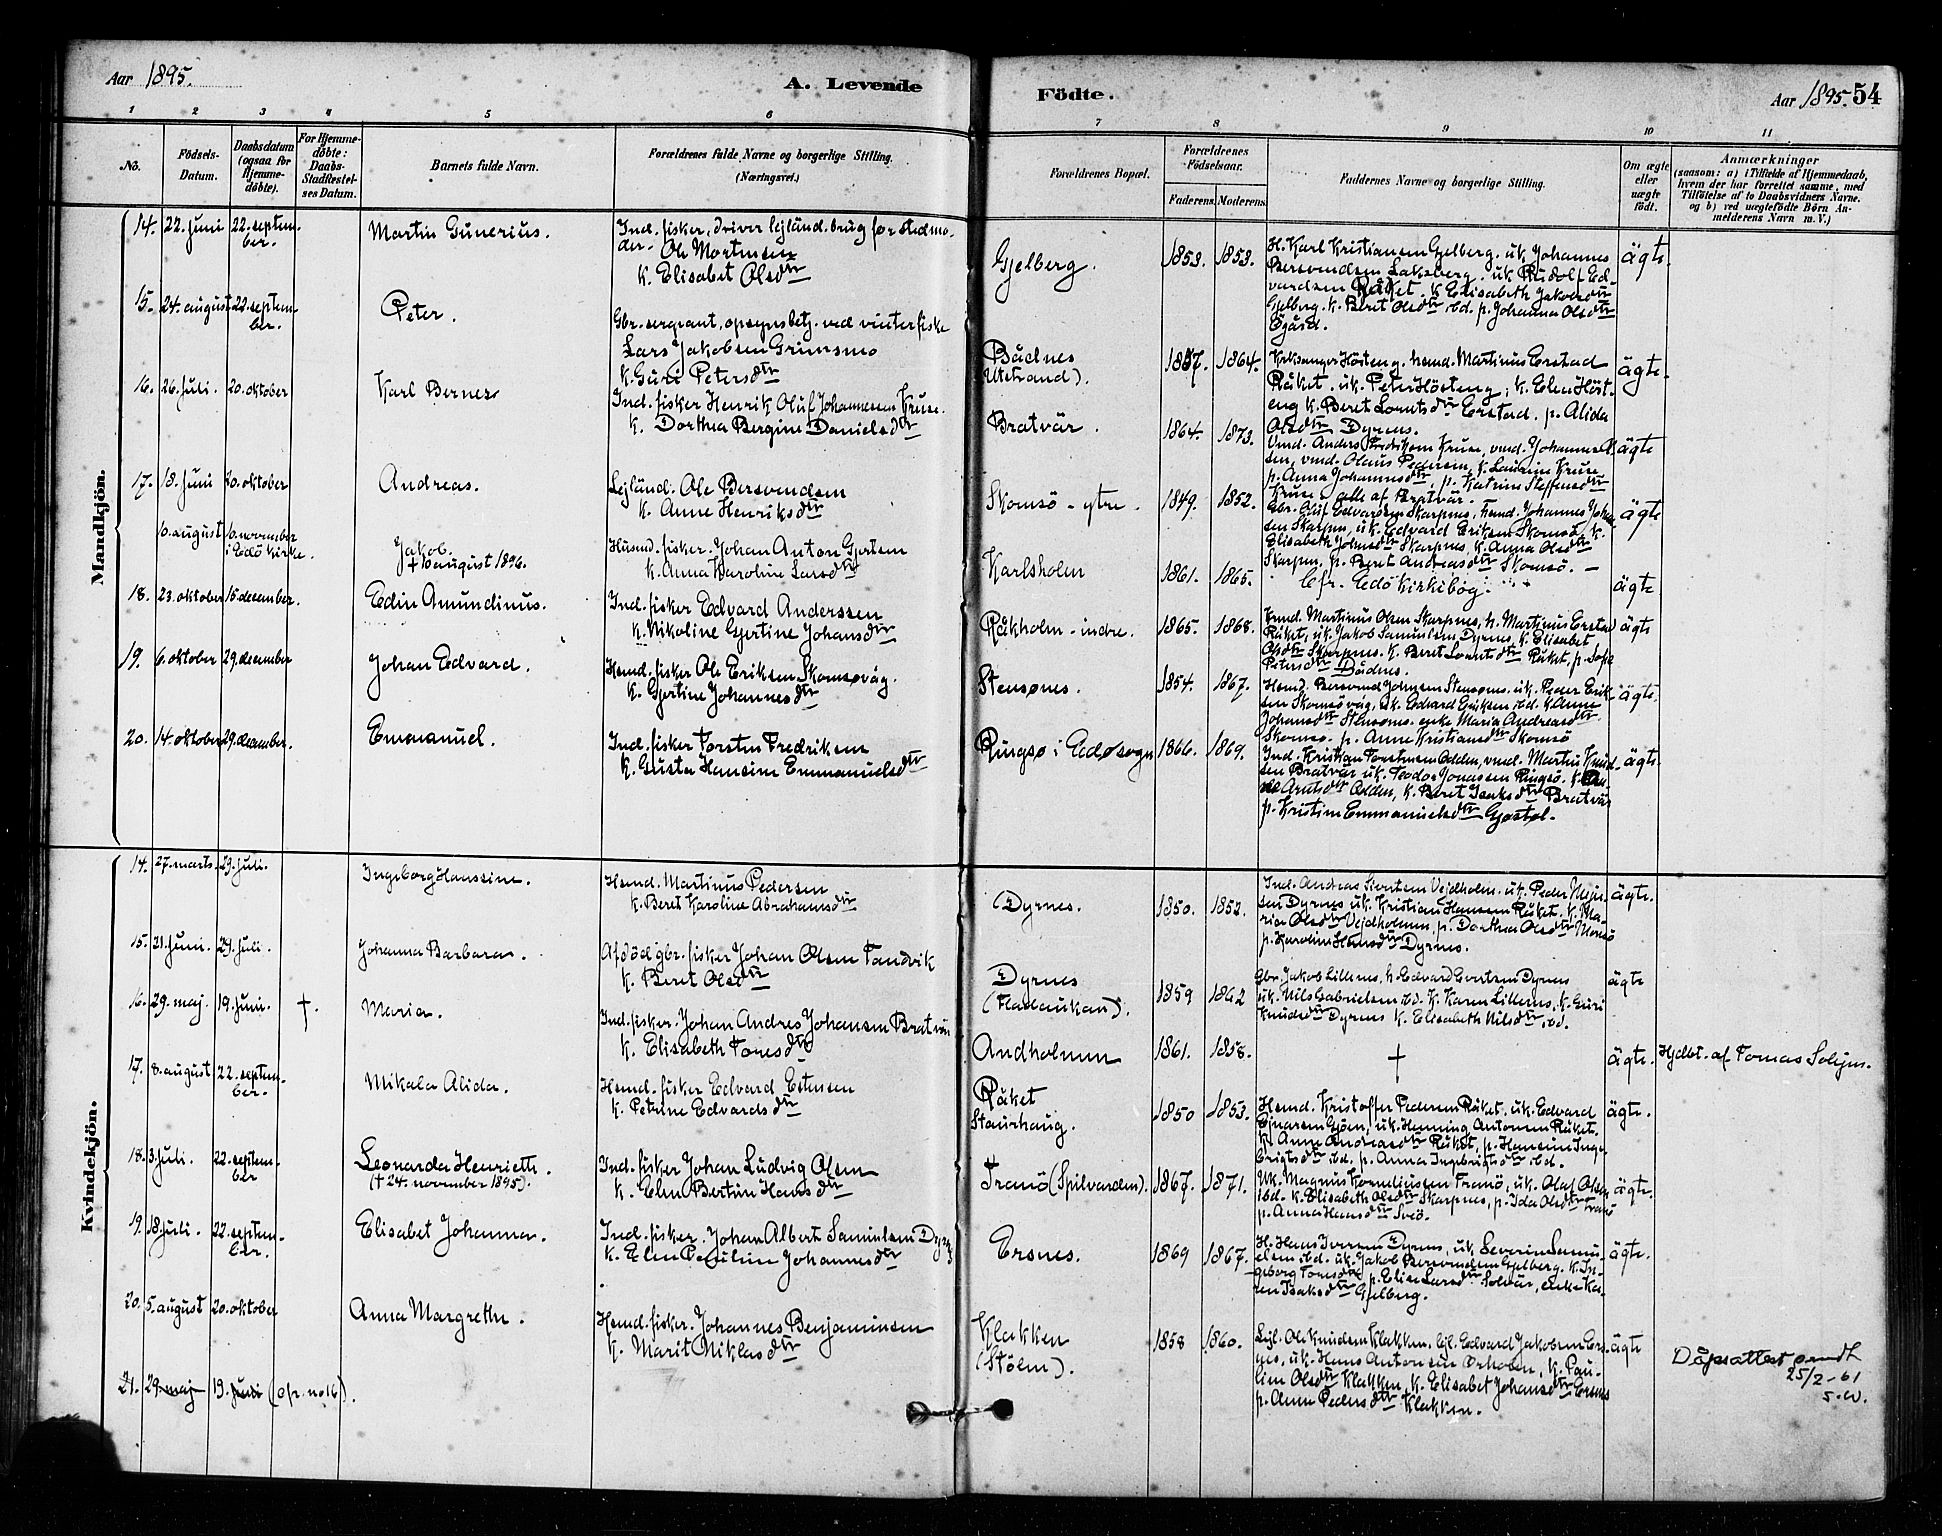 Aar 1895.
A. Levende
Födte.
Aar 1895. 54
1 2 3 4 5 6 7 8 9 10 11
No.
Födsels-
Datum.
Daabsdatum
(ogsaa for
Hjemme-
döbte).
For Hjemme-
döbte:
Daabs-
Stadfæstel-
ses Datum.
Barnets fulde Navn.
Forældrenes fulde Navne og borgerlige Stilling.
(Næringsvei.)
Forældrenes Bopæl.
Forældrenes
Födselsaar.
Faderens. Moderens.
Faddernes Navne og borgerlige Stilling.
Om ægte
eller
uægte
födt.
Anmærkninger
(saasom: a) i Tilfælde af Hjemmedaab,
hvem der har forrettet samme, med
Tilföielse af to Daabsvidners Navne.
og b) ved uægtefödte Börn An-
melderens Navn m. V.)
Mandkjön.
14. 22. juni 22. septem-
ber.
Martin Gunerius.
Ind. fisker, driver lejländ. brug for stedmo-
der. Ole Mortensen
k. Elisabet Olsdtr
Gjelberg.
1853. 1853.
H. Karl Kristiansen Gjelberg. uk. Johannes
Bersvendsen Laksberg. uk. Rudolf Ed-
vardsen Råket. k. Elisabeth Jakobsdtr
Gjelberg. k. Beret Olsdtr ibd. p. Johanna Olsdtr
ägte.
15. 24. august 22. septem-
ber.
Peter.
Gbr. sergeant, opsynsbetj. ved vinterfiske
Lars Jakobsen Grimsmo
k. Guri Petersdtr
Bådnes
(Utstrand).
1857. 1864.
Kirksanger Hösteng. hemd. Martinus Erstad
Råket. uk. Peter Hösteng; k. Elen Höst-
eng k. Beret Lorntsdtr Erstad. p. Alida
Olsdtr Dyrnes.
ägte.
16. 26. juli. 20. oktober
Karl Bernes
Ind. fisker Henrik Oluf Johannessen Kruse.
k. Dorthea Bergine Danielsdtr
Bratvär.
1864. 1873.
sen, vmd. Olaus Pedersen, k. Laurine Kruse
p. Anna Johannesdtr, p. Katrine Steffensdtr
Kruse. alle af Bratvär.
ägte
17. 18. juni 20. oktober
Andreas.
Lejländ. Ole Bersvendsen
k. Anne Henriksdtr
Skomsö - ytre.
1849. 1852.
Gbr. Oluf Edvardsen Skarpnes, hemd. Johannes Johan-
sen Skarpnes, uk. Edvard Eriksen Skomsö. k.
Elisabeth Johnsdtr Skarpnes, k. Anna Olsdtr
Skarpnes, p. Beret Andreasdtr Skomsö. -
ägte
10. august 10. november
i Edö kirke.
Jakob.
+ 10 august 1896.
Husmd. fisker. Johan Anton Gjertsen
k. Anna Karoline Larsdtr
Karlsholm
1861. 1865.
Cfr. Edö Kirkebog.
ägte
18. 23. oktober 15 december.
Edin Amundinus.
Ind. fisker Edvard Anderssen
k. Nikoline Gjertine Johansdtr
Råkholm - indre.
1865. 1868.
Kmd. Martinus Olsen Skarpnes, h. Martinus Erstad
Råket, uk. Jakob Samuelsen Dyrnes, k. Elisabet
Olsdtr Skarpnes. k. Beret Lorntsdtr Råket, p.
Petersdtr Bådnes.
ägte
19. 6. oktober 29. december
Johan Edvard.
Hemd. fisker Ole Eriksen Skomsövåg.
k. Gjertine Johannesdtr
Stensönes.
1854. 1867.
Hemd. Bersvend Johnsen Stensönes. uk. Peder Erik-
sen Skomsövåg, uk. Edvard Eriksen ibd. k Anne
Johansdtr Stensönes. enke Maria Andreasdtr
Skomsö. p. Anne Kristiansdtr Skomsö
ägte.
20. 14. oktober 29. december.
Emmanuel.
Ind. fisker Torsten Fredriksen
k. Gusta Hansine Emmanuelsdtr
Ringsö i Edösogn
1866. 1869.
Ind. Kristian Torstensen Odden, vmd. Martin Knud-
sen Bratvär uk. Teodor Jonassen Ringsö. k.
Arntsdtr Odden, k. Beret Isaksdtr Bratvär
p. Kristine Emmanuelsdtr Gjöstöl.
ägte.
Kvindekjön.
14. 27. marts. 29. juli.
Ingeborg Hanssine.
Hemd. Martinus Pedersen
k. Beret Karoline Abrahamsdtr
Dyrnes.
1850. 1852.
Ind. Andreas Sivertsen Vejdholm. uk. Peder
sen Dyrnes uk. Kristian Hansen Råket. k. Ma-
rie Olsdtr Vejdholmen, p. Dorthea Olsdtr
p. Karoline Hansdtr Dyrnes.
ägte.
15. 21. juni. 29. juli.
Johanna Barbara.
Afdöd gbr. fisker Johan Olsen Tandvik
k. Beret Olsdtr
Dyrnes
1859 1862
Gbr. Jakob Lillenes, h. Edvard Evertsen Dyrnes
uk. Nils Gabrielsen ibd. k. Karen Lillenes, k. Guri
Knudsdtr Dyrnes k. Elisabeth Nilsdtr ibd.
ägte
16. 29. maj. 19. juni. †.
Maria.
Ind. fisker. Johan Andres Johansen Bratvär
k. Elisabeth Toresdtr
Andholmen
1861. 1858.
†
ägte.
Hjdbt. af Tomas Solijen.
17. 8. august 22. septem-
ber.
Mikala Alida.
Hemd. fisker Edvard Estensen
k. Petrine Edvardsdtr
Råket
Staurhaug.
1850 1853.
Hemd. Kristoffer Pedersen Råket. uk. Edvard
Ejnarsen Gjöen, uk. Henning Antonsen Råket.
k. Anne Andreasdtr Råket, p. Hansine Inge-
brigtsdtr ibd. p. Anna Ingebrigtsdtr ibd.
ägte.
18. 3. juli. 22. septem-
ber
Leonarda Henriette.
(† 24. november 1895).
Ind. fisker Johan Ludvig Olsen
k. Elen Bertine Hansdtr
Tranö (Spilvarden).
1867. 1871.
Uk. Magnus Korneliussen Tranö, uk. Olaf Olsen
ibd. k. Elisabeth Olsdtr Skarpnes, p. Ida Olsdtr Tranö
p. Anna Hansdtr Sveö.
ägte.
19. 18. juli. 22. septem-
ber.
Elisabet Johanna.
Ind. fisker. Johan Albert Samuelsen
k. Elen Pauline Johannesdtr
Ersnes.
1869 1867.
H. Hans Iversen Dyrnes, uk. Severin Samu-
elsen ibd. uk. Jakob Bersvendsen Gjelberg. k. In-
geborg Toresdtr, p. Elise Larsdtr Solvär, enke Ka-
ren Isaksdtr Gjelberg.
ägte.
20. 5. august 20. oktober
Anna Margrethe.
Hemd. fisker. Johannes Benjaminsen
k. Marit Niklasdtr
Klakken
(Stölen).
1858 1860.
Lejl. Ole Knudsen Klakken, lejl. Edvard Jakobsen Ers-
nes, uk. Hans Antonsen Orholm, k. Pau-
line Olsdtr Klakken, k. Elisabet Johansdtr Ersnes
p. Anne Pedersdtr Klakken.
ägte
Dåpsattest sendt
25/2-61
S.W.
21. 29. maj 19. juli (cfr. no 16).